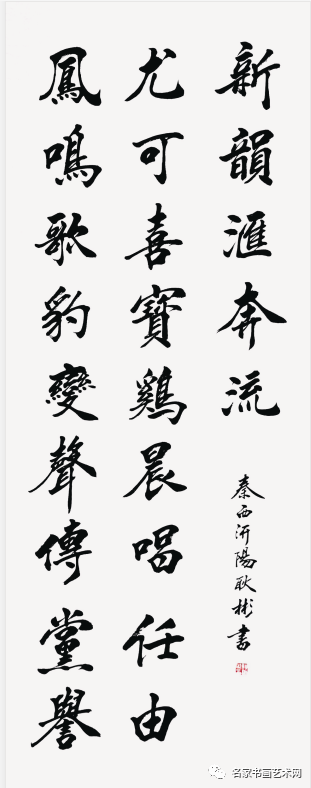 鳳鳴歌豹變聲傳黨譽
尤可喜寶鷄晨唱任由
新韻滙奔流
秦西汧陽耿彬書
名家书画艺术网